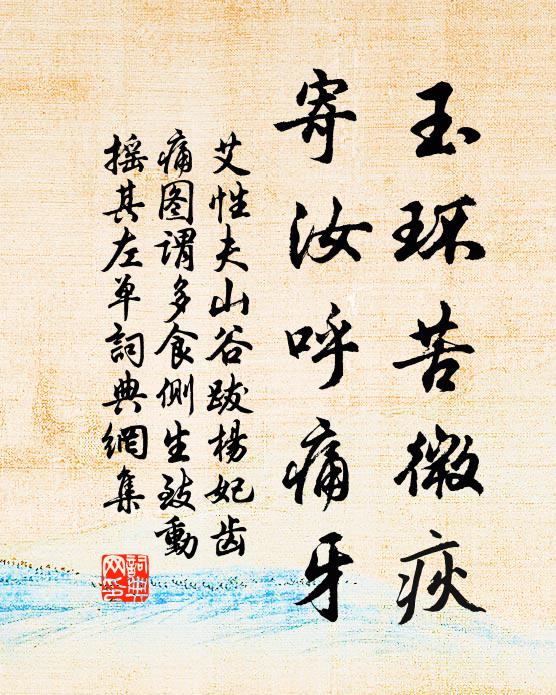 玉环苦微疾
寄汝呼痛牙
艾性夫山谷跋楊妃齿
痛图谓多食侧生致動
摇其左单詞典網集
詞典
网集